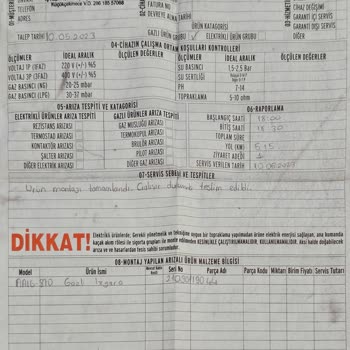 Küçükçekmece V.D. 296 185 87068
01-MÜŞTERİ
TELEFON
ADRES
FATURA NO
DEVREYE ALMA
03-Cİ
CİHAZ DEĞİŞİMİ
GARANTİ İÇİ SERVİS
GARANTİ DIŞI SERVİS
DİĞER
ÜRÜN KATEGORİSİ
TALEP TARİHİ 10.05.2023
GAZLI ÜRÜN GRUBU
ELEKTRİKLİ ÜRÜN GRUBU
04-CİHAZIN ÇALIŞMA ORTAM KOŞULLARI KONTROLLERİ
ÖLÇÜMLER İDEAL ARALIK ÖLÇÜLEN DEĞERLER ÖLÇÜMLER İDEAL ARALIK ÖLÇÜLEN DEĞERLER
VOLTAJ 1P (1FAZ) 220 V (+/-) %5 SU BASINCI 1,5-2,5 Bar
VOLTAJ 3P (3FAZ) 400 V (+/-) %5 SU SERTLİĞİ
GAZ BASINCI (NG) 20-25 mbar PH 7-14
GAZ BASINCI (LPG) 30-37 mbar TOPRAKLAMA 5-10 ohm
05-ARIZA TESPİTİ VE KATAGORİSİ
06-RAPORLAMA
ELEKTRİKLİ ÜRÜNLER ARIZA TESPİTİ GAZLI ÜRÜNLER ARIZA TESPİTİ BAŞLANGIÇ SAATİ 18:00
REZİSTANS ARIZASI GAZ MUSLUĞU ARIZASI BİTİŞ SAATİ 18:30
TERMOSTAT ARIZASI TERMOKUPUL ARIZASI TOPLAM SÜRE
KONTAKTÖR ARIZASI BRULÖR ARIZASI YOL (KM)
ŞALTER ARIZASI PİLOT ARIZASI ZİYARET ADEDİ
DİĞER ELEKTRİK ARIZASI DİĞER GAZ ARIZASI SERVİS VERİLEN TARİH 10.05.2023
07-SERVİS SEBEBİ VE TESPİTLER
Ürün montajı tamamlandı. Çalışır durumda teslim edildi.
DİKKAT!
Elektrikli ürünlerde; Gerekli yönetmelik ve tekniğine uygun bir topraklama yapılmadan ürüne elektrik enerjisi sağlanan, ana kumandada
kaçak akım rölesi ile sigorta grupları ile monte edilmeden KESİNLİKLE ÇALIŞTIRILMAMALIDIR, KULLANILMAMALIDIR. Aksi halde doğabilecek
arıza ve ve hasarlardan tesis sahibi sorumludur.
08-MONTAJ YAPILAN ARIZALI ÜRÜN MALZEME BİLGİSİ
Model Ürün İsmi Seri No Parça Adı Parça Kodu Miktarı Birim Fiyatı Servis Tutarı
Gazlı Izgara